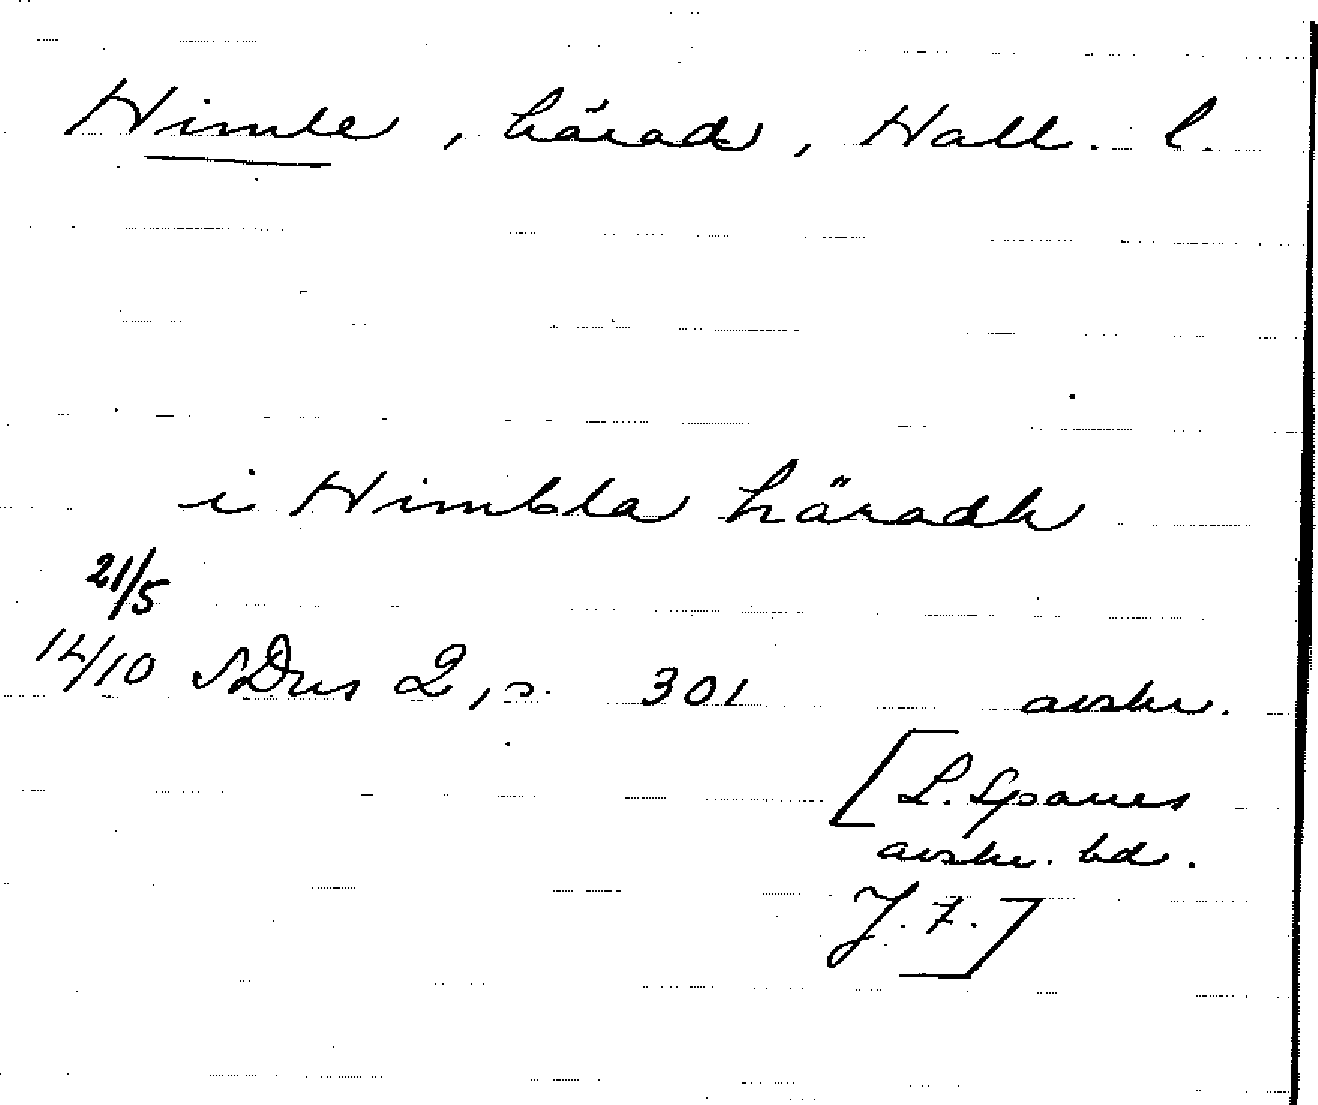 Himle, härad, Hall. l.
i Himbla häradh
21/5
14/10 SDns 2, s. 301 avskr.
[L. Sparres
avskr. bd.
J. 7.]